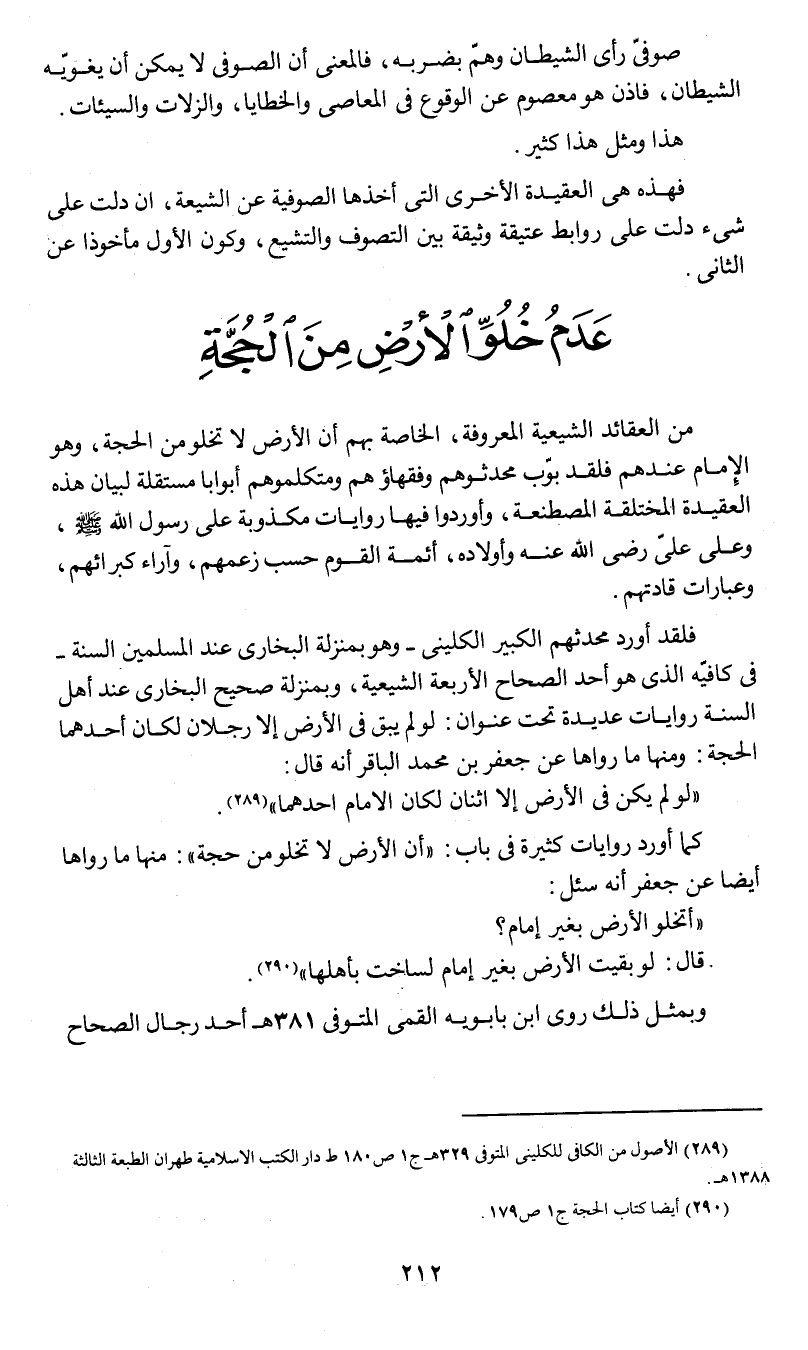 صوفىّ رأى الشيطان وهمّ بضربه، فالمعنى أن الصوفى لا يمكن أن يغويّه
الشيطان، فاذن هو معصوم عن الوقوع فى المعاصى والخطايا، والزلات والسيئات.
هذا ومثل هذا كثير.
فهذه هى العقيدة الأخرى التى أخذها الصوفية عن الشيعة، ان دلت على
شىء دلت على روابط عتيقة وثيقة بين التصوف والتشيع، وكون الأول مأخوذا عن
الثانى.
عَدَمُ خُلُوِّ الْأَرْضِ مِنَ الْحُجَّةِ
من العقائد الشيعية المعروفة، الخاصة بهم أن الأرض لا تخلو من الحجة، وهو
الإمام عندهم فلقد بوّب محدثوهم وفقهاؤ هم ومتكلموهم أبوابا مستقلة لبيان هذه
العقيدة المختلقة المصطنعة، وأوردوا فيها روايات مكذوبة على رسول الله ﷺ،
وعلى علىّ رضى الله عنه وأولاده، أئمة القوم حسب زعمهم، وآراء كبرائهم،
وعبارات قادتهم.
فلقد أورد محدثهم الكبير الكلينى ـ وهو بمنزلة البخارى عند المسلمين السنة ـ
فى كافيّه الذى هو أحد الصحاح الأربعة الشيعية، وبمنزلة صحيح البخارى عند أهل
السنة روايات عديدة تحت عنوان: لو لم يبق فى الأرض إلا رجلان لكان أحدهما
الحجة: ومنها ما رواها عن جعفر بن محمد الباقر أنه قال:
«لو لم يكن فى الأرض إلا اثنان لكان الامام احدهما»(٢٨٩).
كما أورد روايات كثيرة فى باب: «أن الأرض لا تخلو من حجة»: منها ما رواها
أيضا عن جعفر أنه سئل:
«أتخلو الأرض بغير إمام؟
.قال: لو بقيت الأرض بغير إمام لساخت بأهلها»(٢٩٠).
وبمثل ذلك روى ابن بابويه القمى المتوفى ٣٨١هـ أحد رجال الصحاح
(٢٨٩) الأصول من الكافى للكلينى المتوفى ٣٢٩هـ ج١ ص١٨٠ ط دار الكتب الاسلامية طهران الطبعة الثالثة
١٣٨٨هـ.
(٢٩٠) أيضا كتاب الحجة ج١ ص١٧٩.
٢١٢